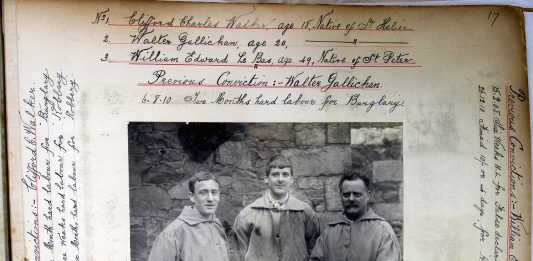 17
No 1. Clifford Charles Walker, age 18, Native of St Helier
2. Walter Gallichan, age 20, "
3. William Edward Le Bas, age 49, Native of St Peter
Previous Conviction :- Walter Gallichan.
6.8.10. Two Months hard labour for Burglary.
Convictions :- Clifford C Walker
Month hard labour for Burglary
Weeks hard labour for Robbery
Months hard labour for Robbery
Previous Convictions :- William
15.2.08. Weeks H.L. for False
26.12.1 Fined 10/- or days for